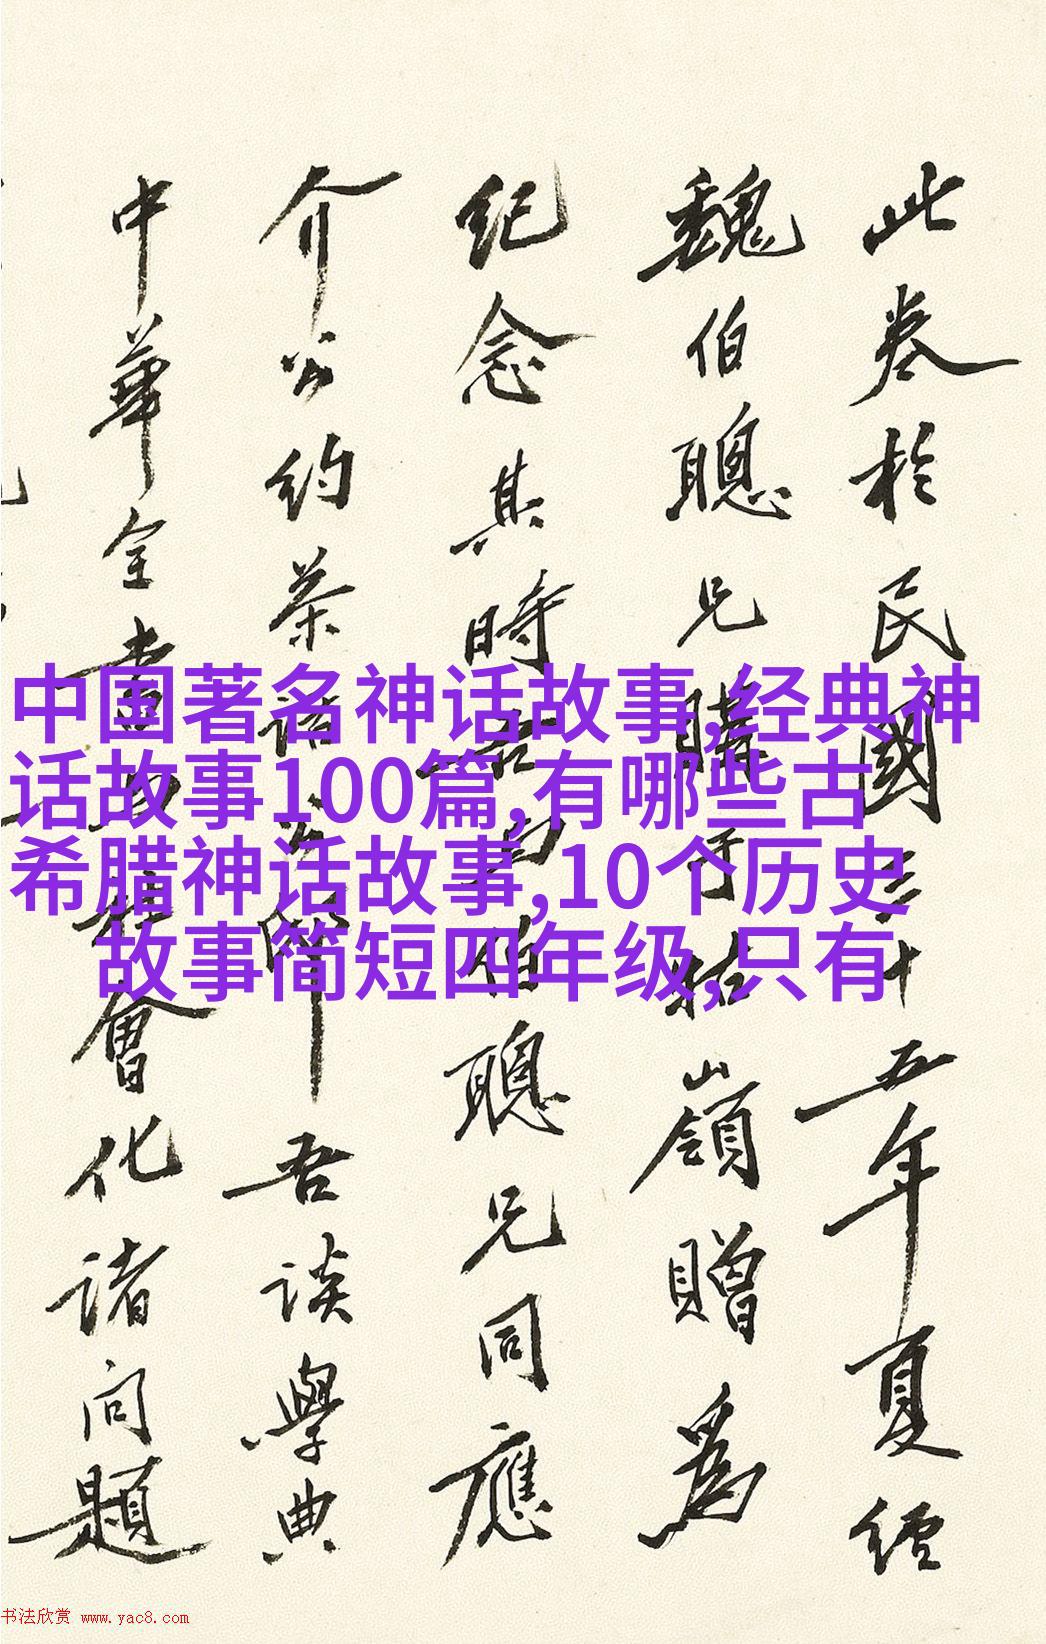 此卷於民國三十五年夏經
魏伯聰兄購于牯嶺贈爲
紀念其時吾與伯聰兄同應
介公約茶話公餘吾談學典
中華全書與社會化諸问題
中国著名神话故事,经典神
话故事100篇,有哪些古
希腊神话故事,10个历史
故事简短四年级,只有
书法欣赏 www.yac8.com